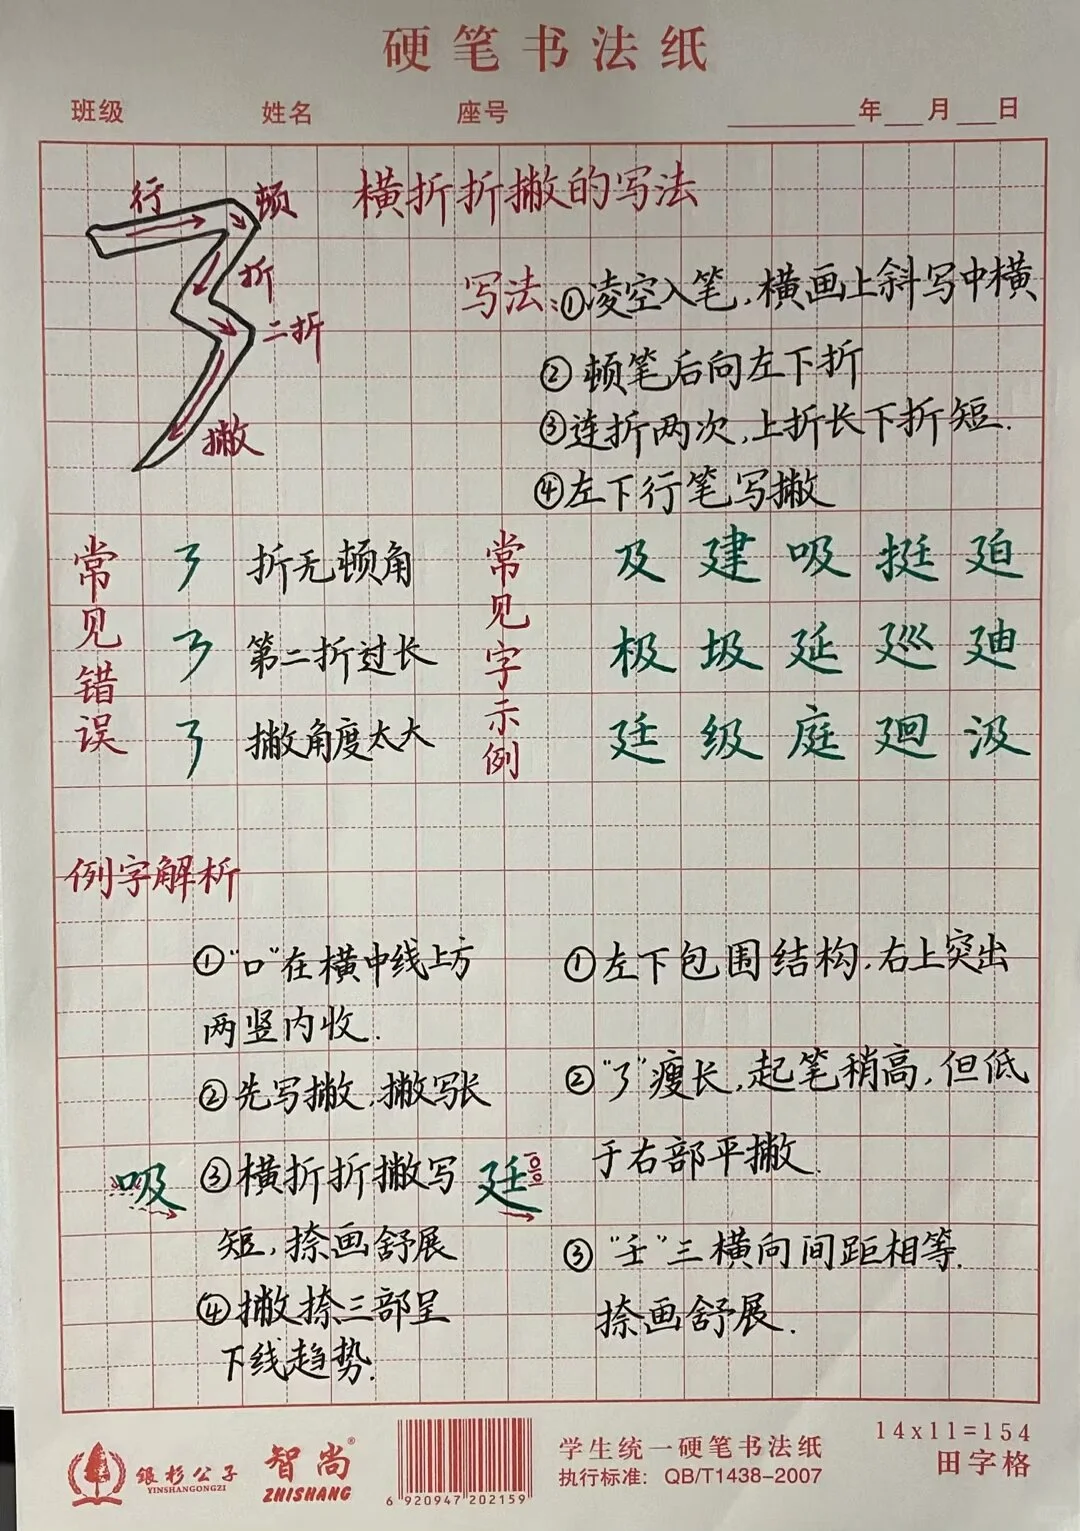 硬笔书法纸
班级 姓名 座号 年 月 日
横折折撇的写法
行 顿
折
二折
撇
写法:①凌空入笔,横画上斜写中横
②顿笔后向左下折
③连折两次,上折长下折短.
④左下行笔写撇
常见错误
折无顿角
第二折过长
撇角度太大
常见字示例
及 建 吸 挺 廹
极 圾 延 巡 廸
廷 级 庭 廻 汲
例字解析
吸
①"口"在横中线上方
两竖内收.
②先写撇,撇写长
③横折折撇写
短,捺画舒展
④撇捺三部呈
下线趋势.
廷
①左下包围结构,右上突出
②"㇋"瘦长,起笔稍高,但低
于右部平撇.
③"壬"三横向间距相等.
捺画舒展.
银杉公子
YINSHANGONGZI
智尚®
ZHISHANG
6 920947 202159
学生统一硬笔书法纸
执行标准: QB/T1438-2007
14x11=154
田字格